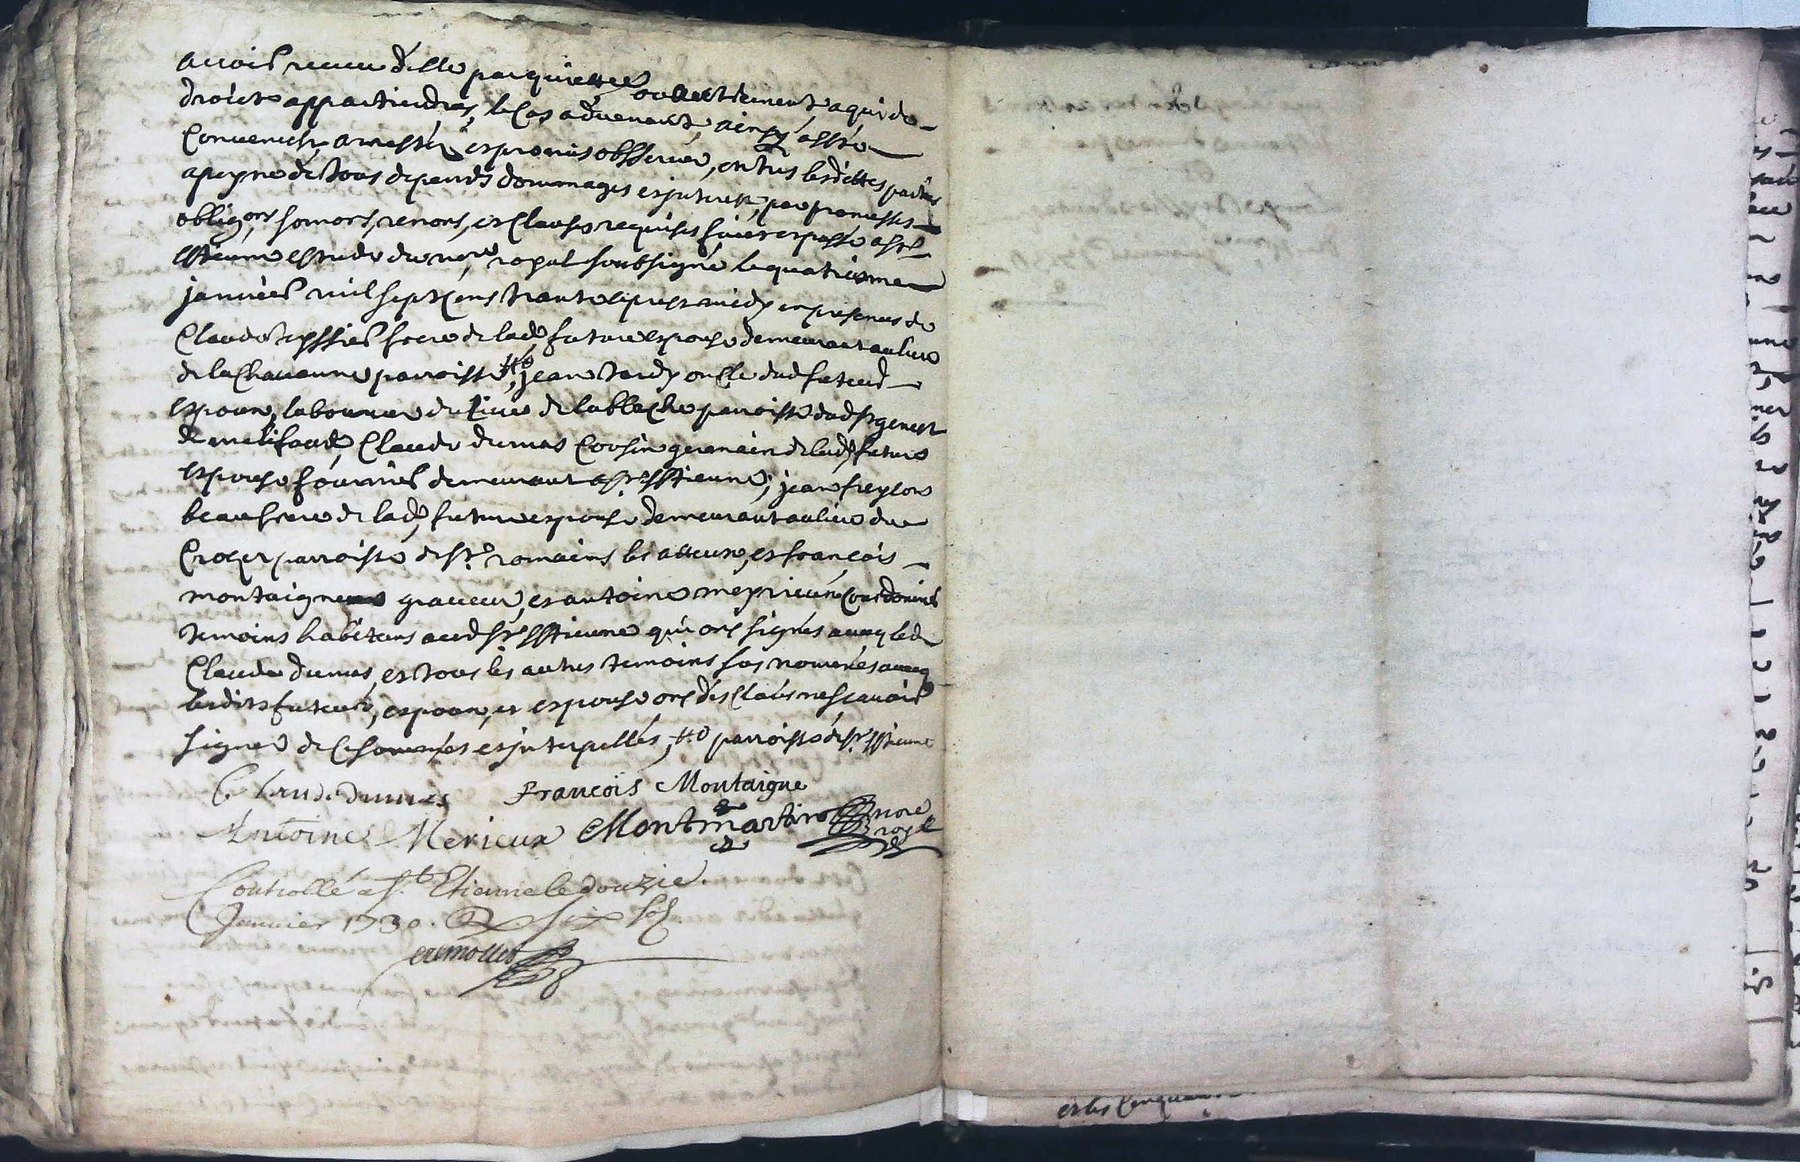 avoir receu d'elle par quittances ou autrement, a qui de
droict appartiendra, le cas advenant, ainsy a esté
convenu, arresté et promis observer, entre lesdittes parties
a peyne de tous depends dommages et interest, par promesses
obligons, somons, renons, et clauses requises fait et passé a st
estienne estude du nore royal soubsigné le quatriesme
janvier mil sept cens trante apres midy en presence de
Claude teyssier frere de lade future espouse demeurant au lieu
de la Chauanne parroisse, jean tardy oncle dud futeur
espoux, laboureur du lieu de lableche parroisse dud st genest
de malifaud, Claude dumas Cousin germain de lade future
espouse fournier demeurant a st estienne, jean freyson
beaufrere de lade future espouse demeurant au lieu du
Crozet parroisse de st romains les atteux, et françois
montaigne graveur, et antoine merieux Cordonnier
temoins habitans aud st estienne qui ont signés avecq led
Claude dumas, et tous les autres temoins sus nommés avecq
lesdits futeur, espoux, et espouse ont declaré ne scavoir
signer de ce sommés et interpellés, parroisse de st estienne
Claude dumas François Montaigne
Antoine Merieux Montmartin nore royal
Controllé a St. Etienne le douzie.
Janvier 1730. R six sols
et les